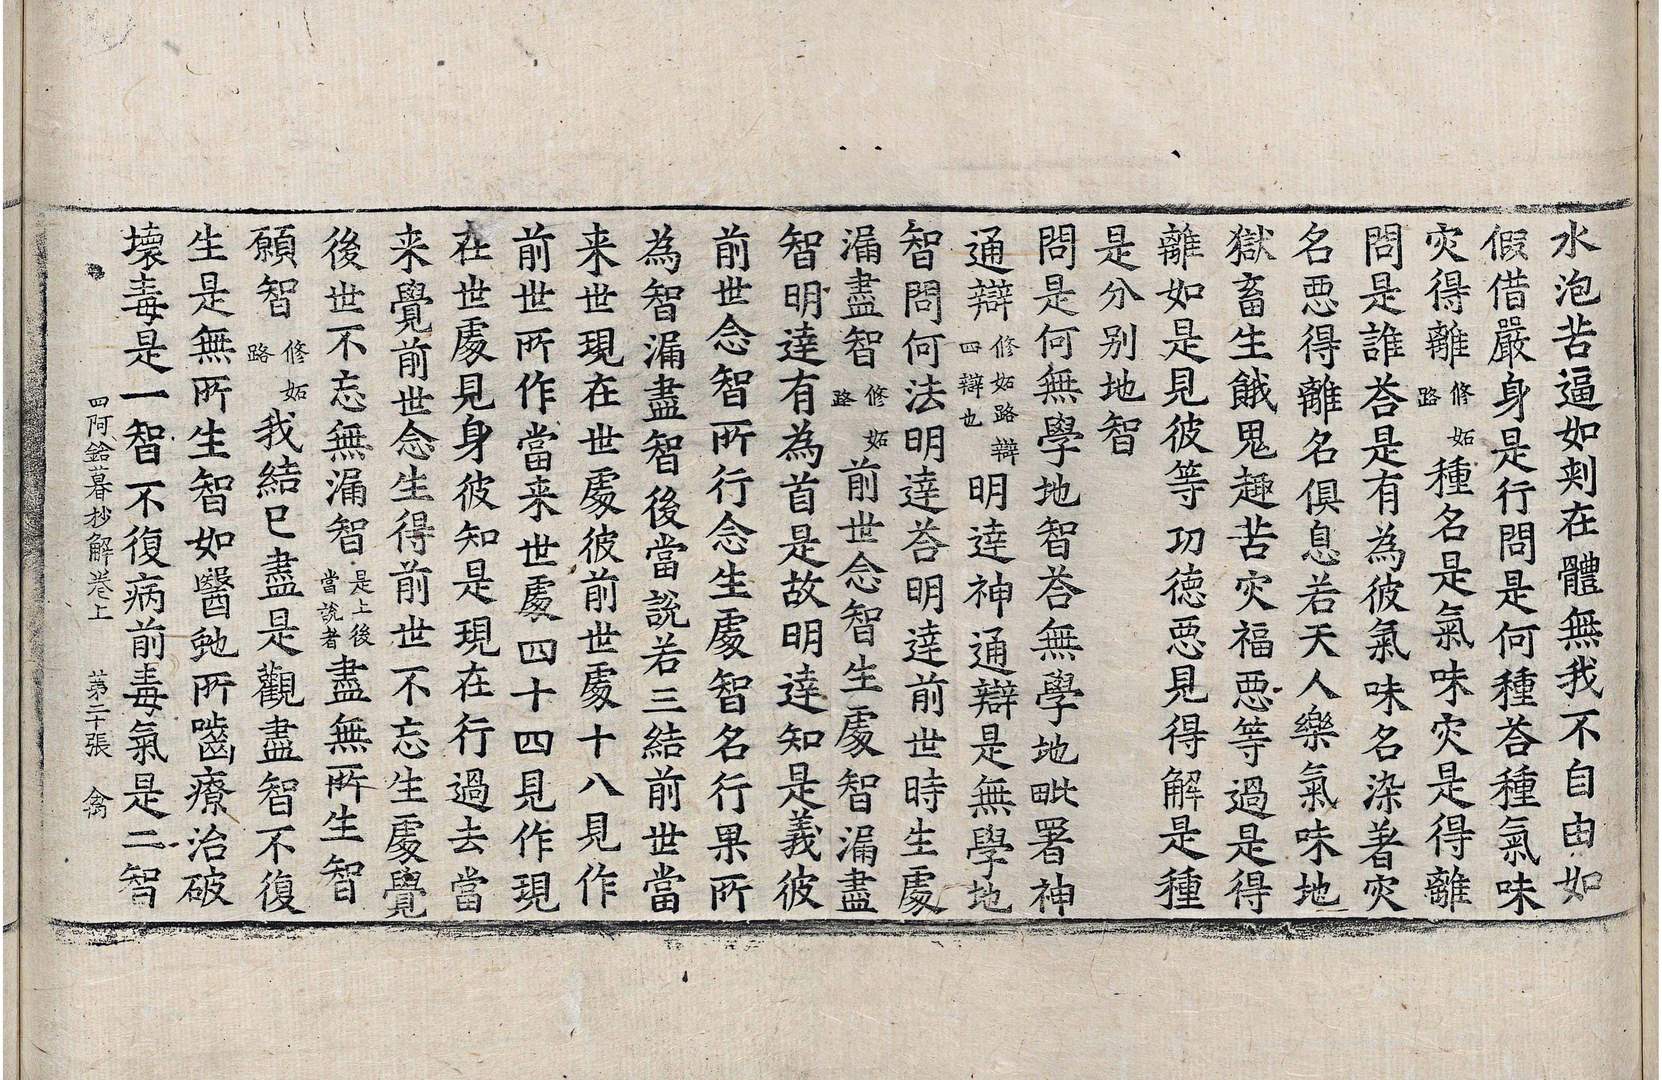 水泡苦逼如剌在體無我不自由如
假借嚴身是行問是何種荅種氣味
灾得離修妬路種名是氣味灾是得離
問是誰荅是有為彼氣味名染著灾
名惡得離名俱息若天人樂氣味地
獄畜生餓鬼趣苦灾福惡等過是得
離如是見彼等功德惡見得解是種
是分別地智
問是何無學地智荅無學地毗署神
通辯修妬路辯四辯也明達神通辯是無學地
智問何法明達荅明達前世時生處
漏盡智修妬路前世念智生處智漏盡
智明達有為首是故明達知是義彼
前世念智所行念生處智名行果所
為智漏盡智後當說若三結前世當
来世現在世處彼前世處十八見作
前世所作當来世處四十四見作現
在世處見身彼知是現在行過去當
来覺前世念生得前世不忘生處覺
後世不忘無漏智是上後當說者盡無所生智
願智修妬路我結已盡是觀盡智不復
生是無所生智如醫虵所嚙療治破
壞毒是一智不復病前毒氣是二智
四阿鋡暮抄解卷上 第二十張 禽